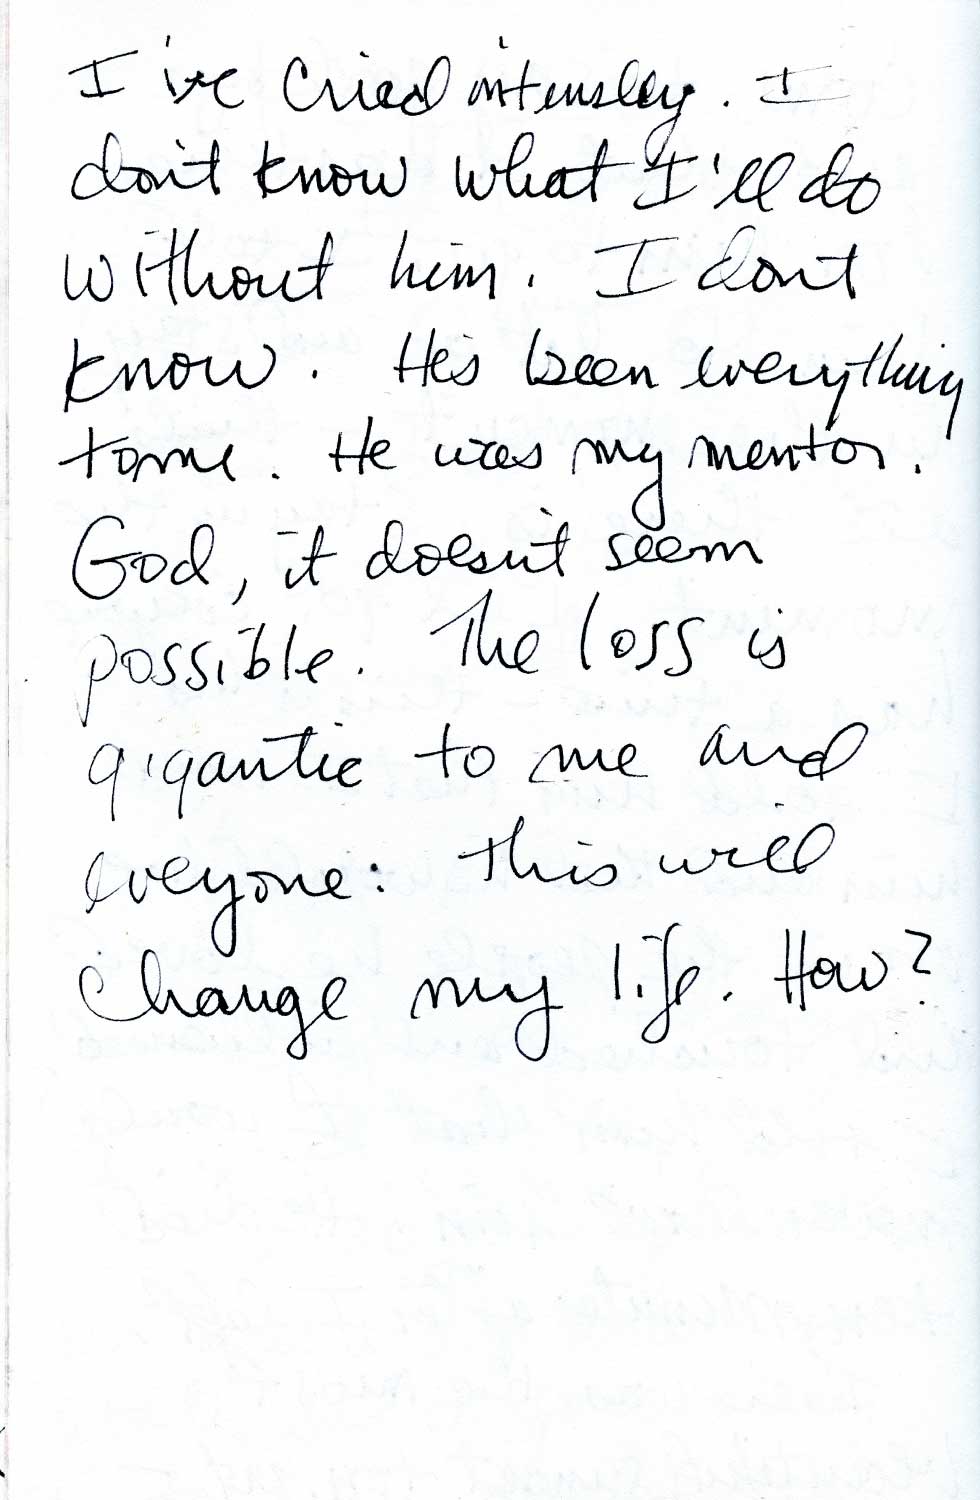 I've cried intensley. I
don't know what I'll do
without him. I dont
know. He's been everything
to me. He was my mentor.
God, it doesn't seem
possible. The loss is
gigantic to me and
everyone: this will
change my life. How?